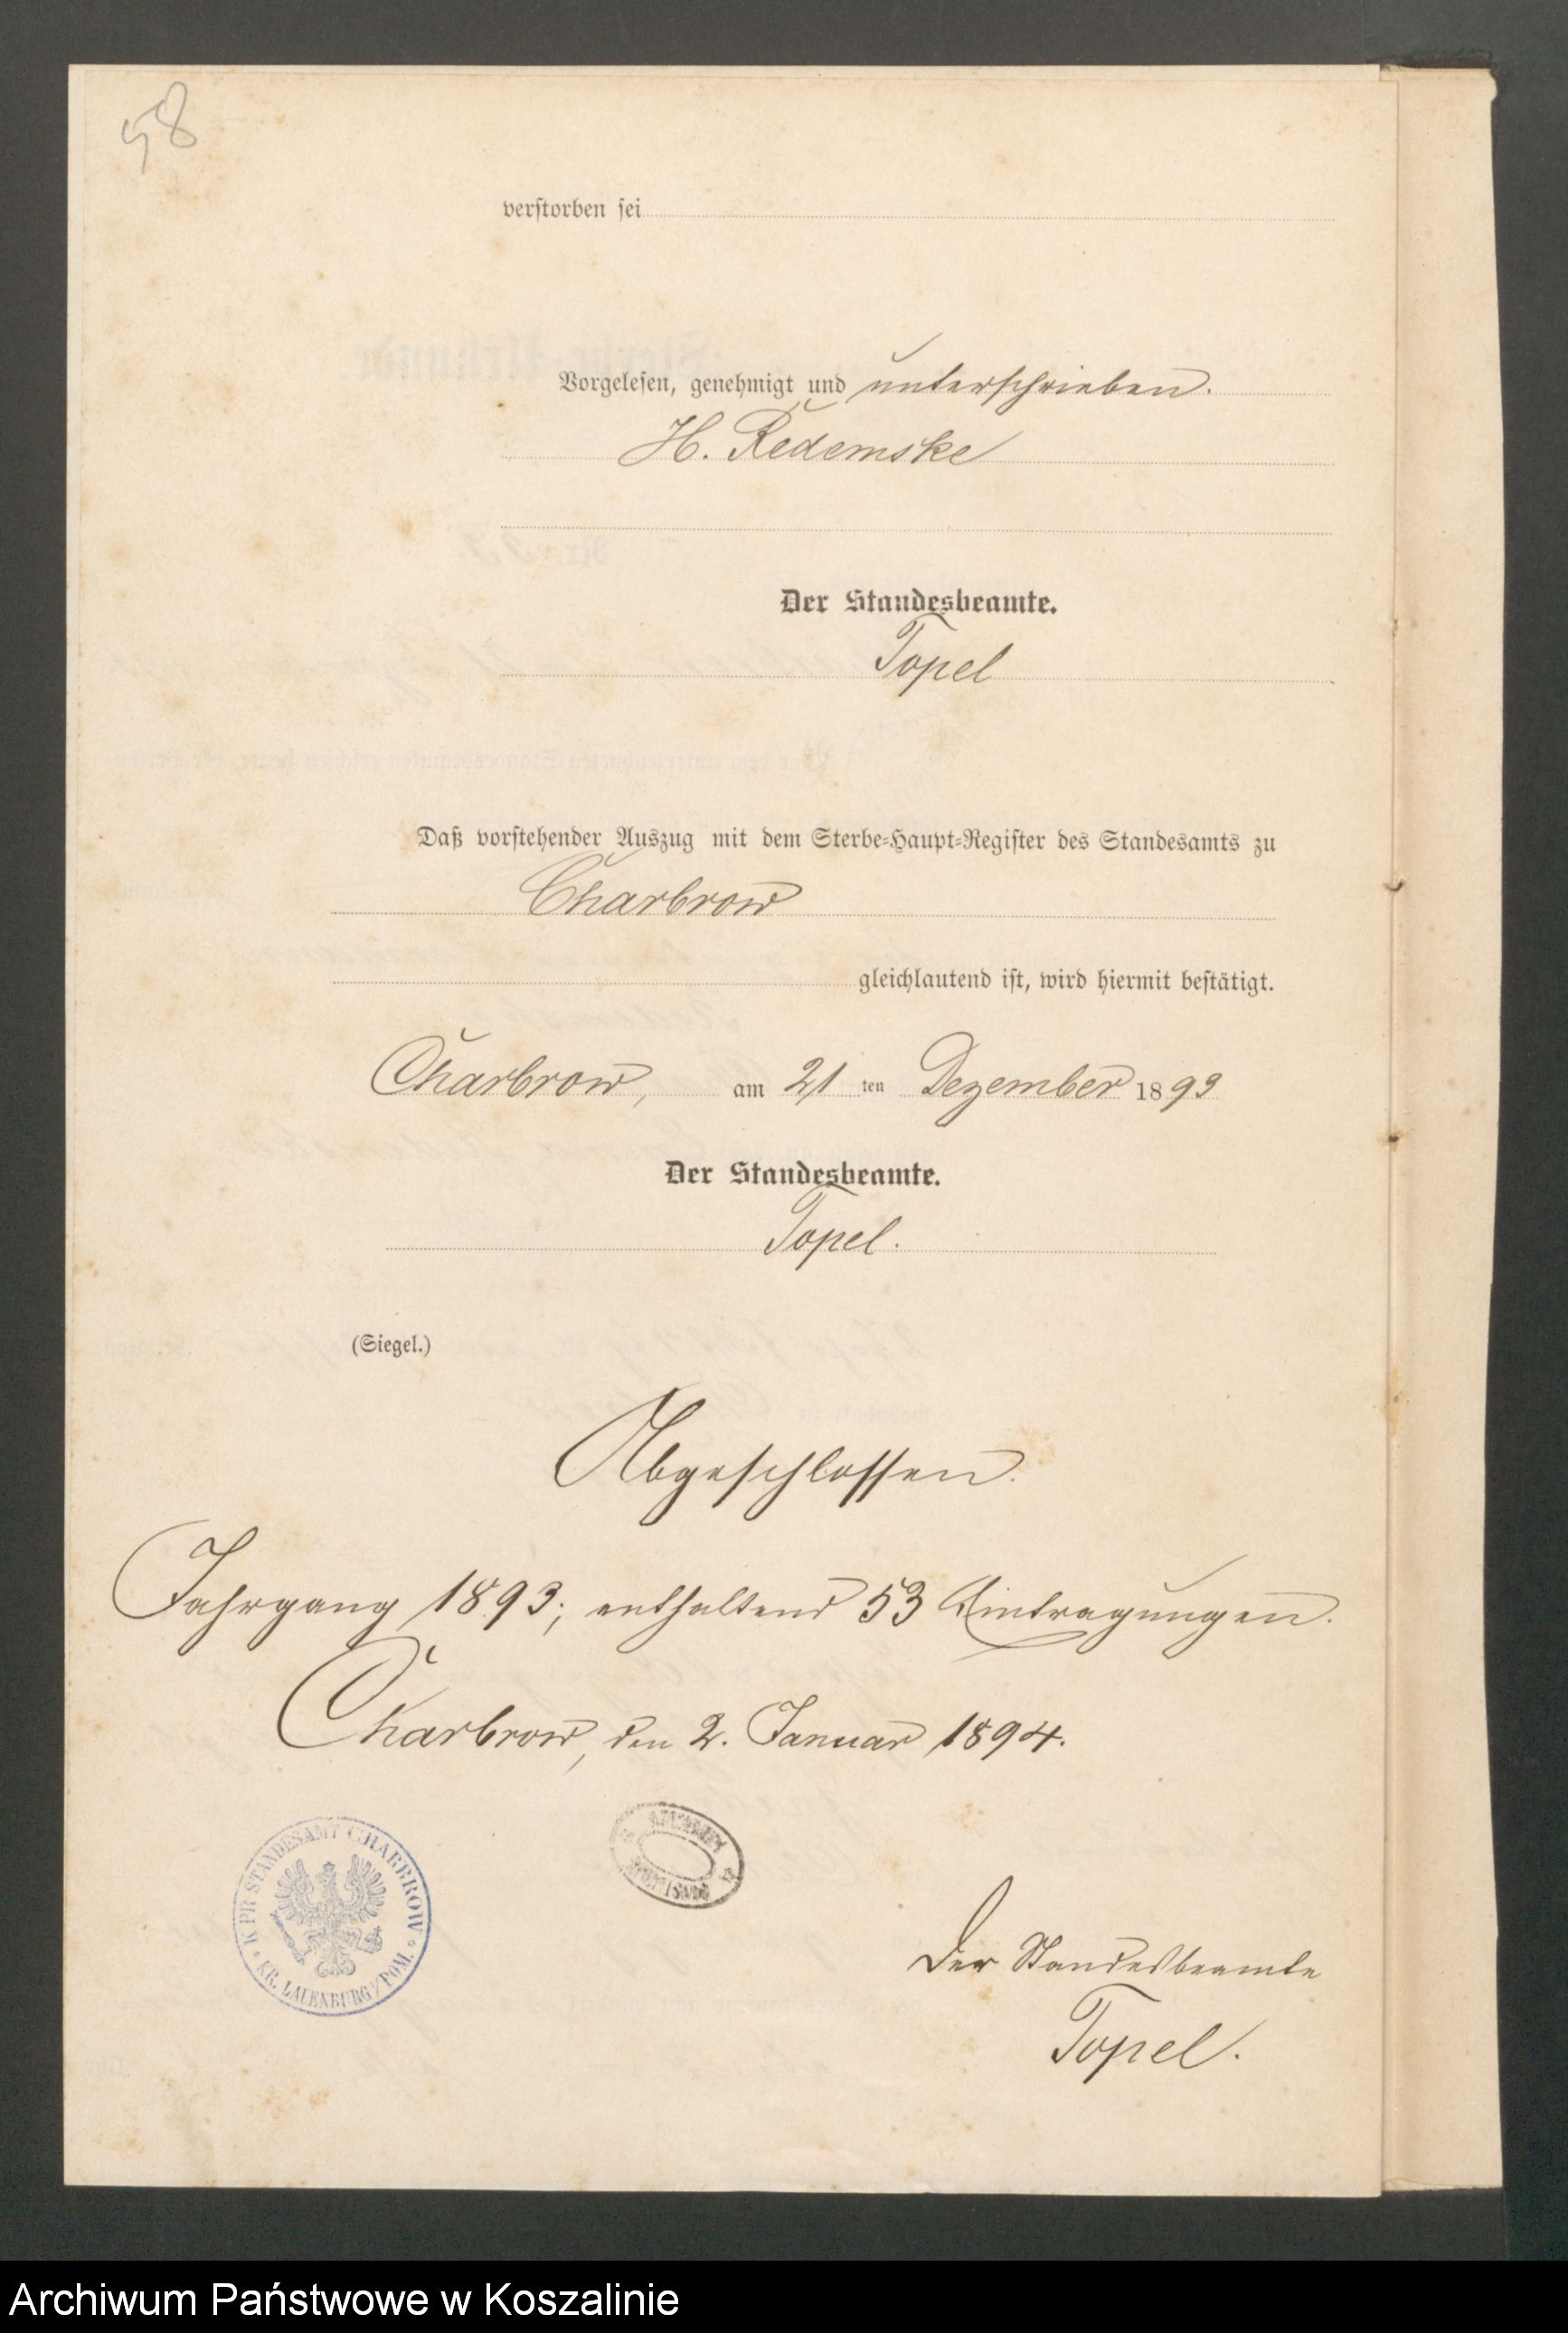 58
verstorben sei
Vorgelesen, genehmigt und unterschrieben.
H. Redemske
Der Standesbeamte.
Topel
Daß vorstehender Auszug mit dem Sterbe-Haupt-Register des Standesamts zu
Charbrow
gleichlautend ist, wird hiermit bestätigt.
Charbrow, am 21 ten Dezember 1893
Der Standesbeamte.
Topel.
(Siegel.)
Abgeschlossen.
Jahrgang 1893; enthaltend 53 Eintragungen.
Charbrow, den 2. Januar 1894.
K PR STANDESAMT CHARBROW
KR. LAUENBURG/POM.
Der Standesbeamte
Topel.
Archiwum Państwowe w Koszalinie